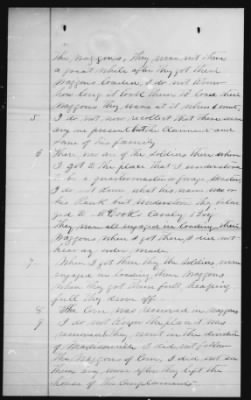 the waggons, they was not there
a great while after they got their
waggons loaded, I do not know
how long it took them to load their
waggons they was at it when I went,
5 I do not now recollect that there was
any one present but the Claimant and
some of his family
6 There was an of the soldiers there when
I got to the place that I understood
to be a quartermaster or forage Master
I do not know what his name was or
his Rank but understood they belon
ged to Cooks Cavalry
They was all engaged in loading their
Waggons when I got there, I did not
hear any orders made
7 When I got there they the Soldiers were
engaged in loading their waggons
When they got them full, heaping
full they drove off
8 The Corn was removed in Waggons
9 I do not know the place it was
removed they went in the direction
of Madisonville I did not follow
the Waggons of Corn, I did not see
them any more after they left the
house of the Complainant